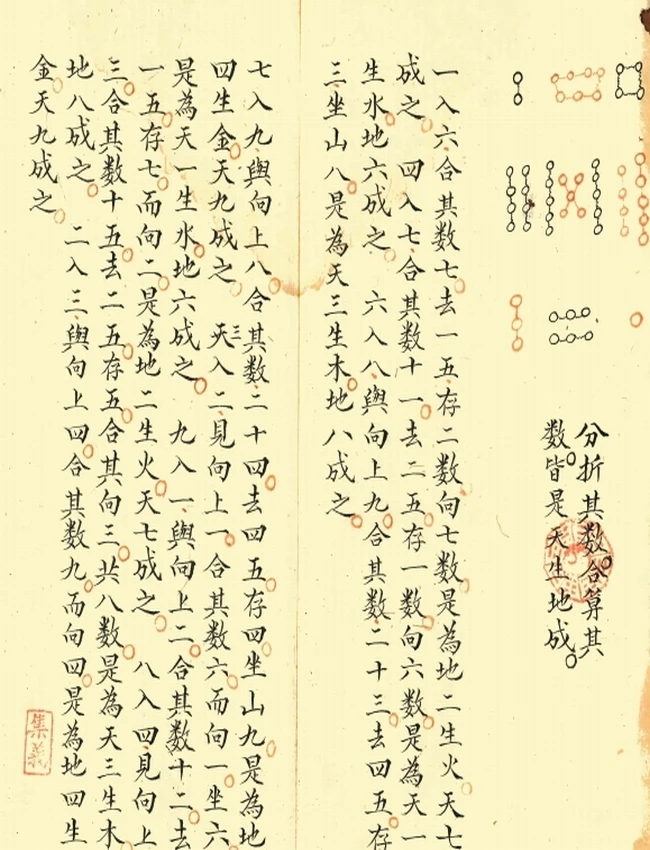 分折其数合算其
数皆是天生地成
一入六合其数七去一五存二数向七数是為地二生火天七
成之　四入七合其数十一去二五存一数向六数是為天一
生水地六成之　六入八與向上九合其数二十三去四五存
三坐山八是為天三生木地八成之
七入九與向上八合其数二十四去四五存四坐山九是為地
四生金天九成之　三入二見向上一合其数六而向一坐六
是為天一生水地六成之　九入一與向上二合其数十二去
一五存七而向二是為地二生火天七成之　八入四見向上
三合其数十五去二五存五合其向三共八数是為天三生木
地八成之　二入三與向上四合其数九而向四是為地四生
金天九成之
集義